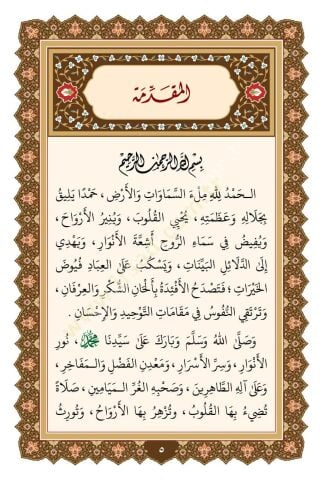 المقدّمة
بِسْمِ اللهِ الرَّحْمٰنِ الرَّحِيْمِ
الـحَمْدُ لِلهِ مِلْءَ السَّمَاوَاتِ وَالأَرْضِ، حَمْدًا يَلِيقُ
بِجَلَالِهِ وَعَظَمَتِهِ، يُحْيِي القُلُوبَ، وَيُنِيرُ الأَرْوَاحَ،
وَيُفِيضُ فِي سَمَاءِ الرُّوحِ أَشِعَّةَ الأَنْوَارِ، وَيَهْدِي
إِلَى الدَّلَائِلِ البَيِّنَاتِ، وَيَسْكُبُ عَلَى العِبَادِ فُيُوضَ
الخَيْرَاتِ؛ فَتَصْدَحُ الأَفْئِدَةُ بِأَلْحَانِ الشُّكْرِ وَالعِرْفَانِ،
وَتَرْتَقِي النُّفُوسُ فِي مَقَامَاتِ التَّوْحِيدِ وَالإِحْسَانِ.
وَصَلَّى اللهُ وَسَلَّمَ وَبَارَكَ عَلَى سَيِّدِنَا مُحَمَّدٍ، نُورِ
الأَنْوَارِ، وَسِرِّ الأَسْرَارِ، وَمَعْدِنِ الفَضْلِ وَالـمَفَاخِرِ،
وَعَلَى آلِهِ الطَّاهِرِينَ، وَصَحْبِهِ الغُرِّ الـمَيَامِينِ، صَلَاةً
تُضِيءُ بِهَا القُلُوبُ، وَتُزْهِرُ بِهَا الأَرْوَاحُ، وَتُورِثُ
٥